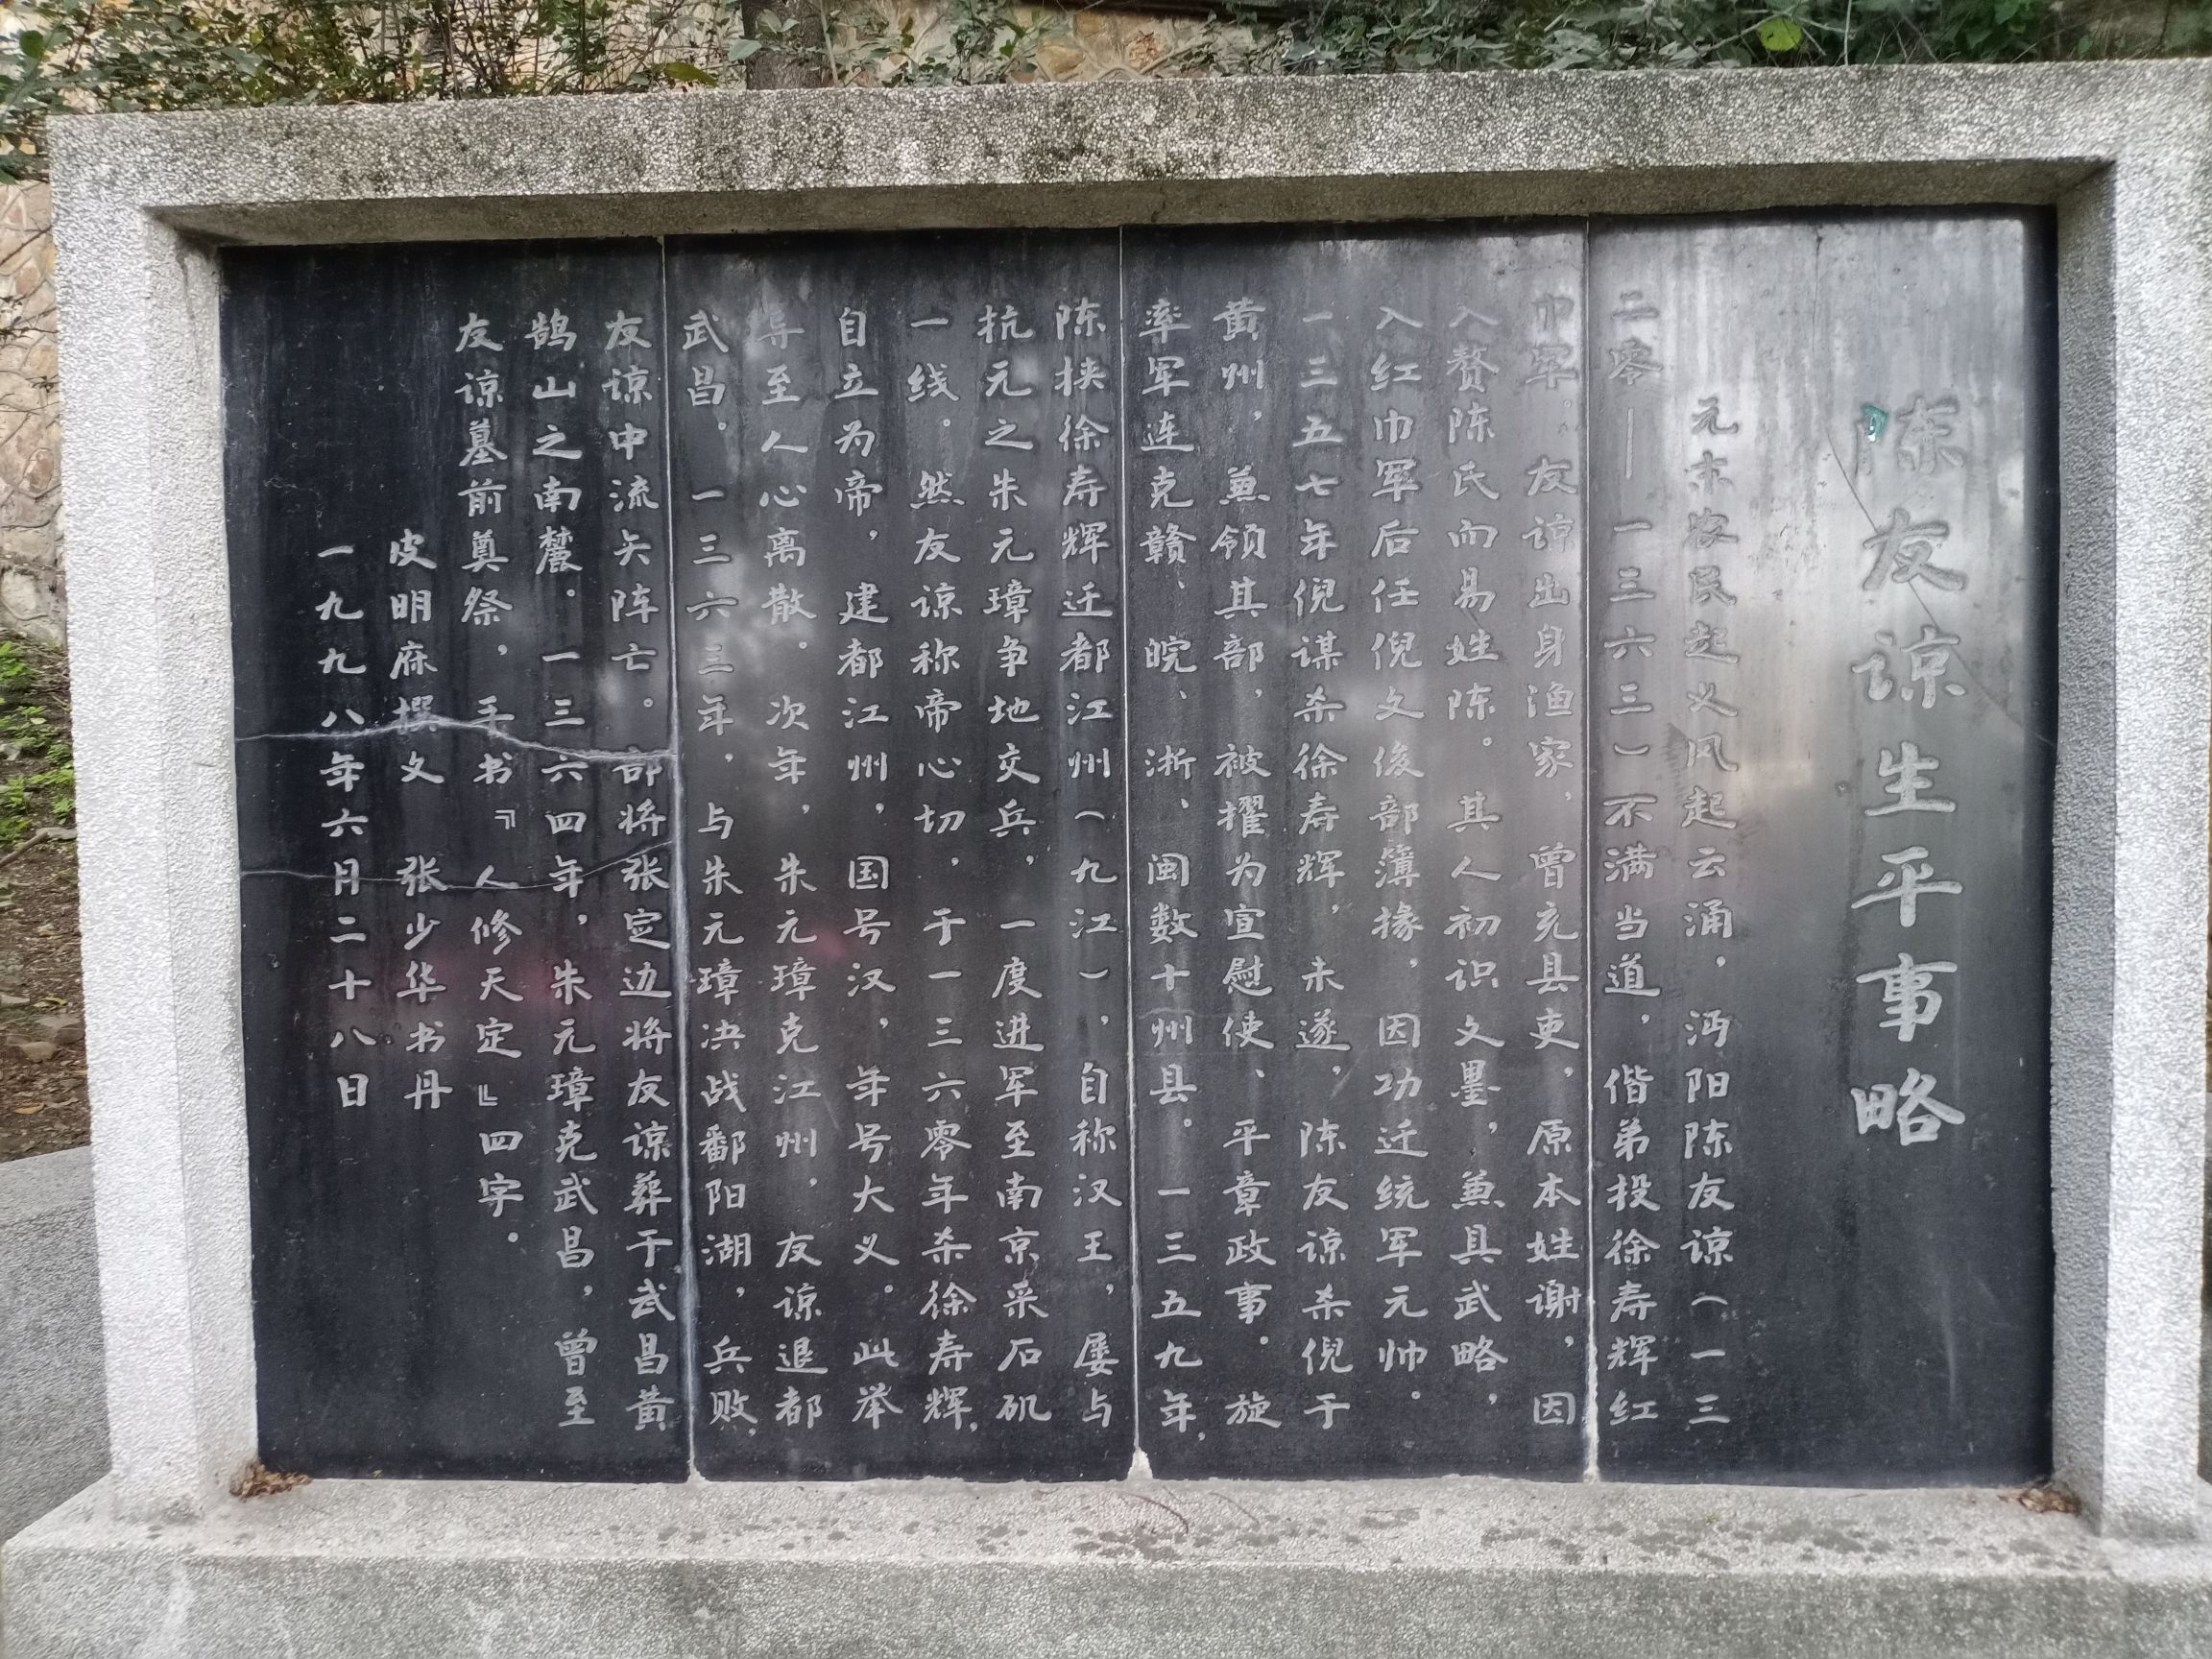 陈友谅生平事略
元末农民起义风起云涌，沔阳陈友谅（一三
二零——一三六三）不满当道，偕弟投徐寿辉红
巾军。友谅出身渔家，曾充县吏，原本姓谢，因
入赘陈氏而易姓陈。其人初识文墨，兼具武略，
入红巾军后任倪文俊部簿掾，因功迁统军元帅。
一三五七年倪谋杀徐寿辉，未遂，陈友谅杀倪于
黄州，兼领其部，被擢为宣慰使、平章政事。旋
率军连克赣、皖、浙、闽数十州县。一三五九年，
陈挟徐寿辉迁都江州（九江），自称汉王，屡与
抗元之朱元璋争地交兵，一度进军至南京采石矶
一线。然友谅称帝心切，于一三六零年杀徐寿辉，
自立为帝，建都江州，国号汉，年号大义。此举
导至人心离散。次年，朱元璋克江州，友谅退都
武昌。一三六三年，与朱元璋决战鄱阳湖，兵败，
友谅中流矢阵亡。部将张定边将友谅葬于武昌黄
鹄山之南麓。一三六四年，朱元璋克武昌，曾至
友谅墓前奠祭，手书『人修天定』四字。
皮明庥撰文 张少华书丹
一九九八年六月二十八日